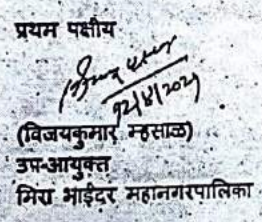 प्रथम पक्षीय
12/8/2021
(विजयकुमार म्हसाळ)
उप-आयुक्त
मिरा भाईंदर महानगरपालिका